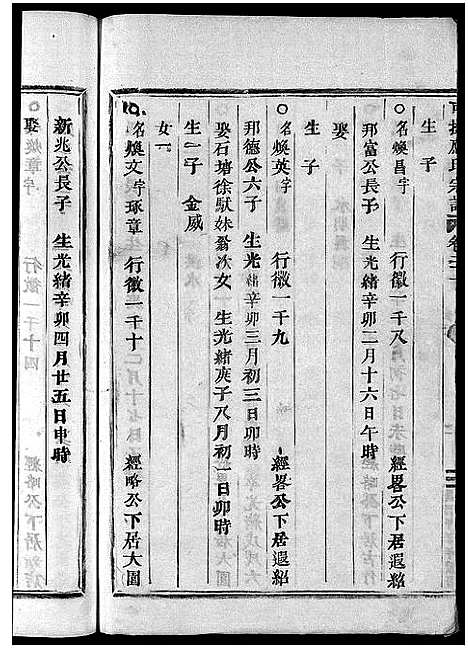 生子
名煥昌字 行徽一千八 經畧公下居遐紹
邦富公長子 生光緒辛卯二月十六日午時
娶
生子
名煥英字 行徽一千九 經畧公下居遐紹
邦德公六子 生光緒辛卯三月初三日卯時
娶石塘徐馱妹翁次女 生光緒庚子八月初一日卯時
生一子 金威
女一
名煥文字琢章 行徽一千十 經略公下居大園
新兆公長子 生光緒辛卯四月廿五日申時
娶